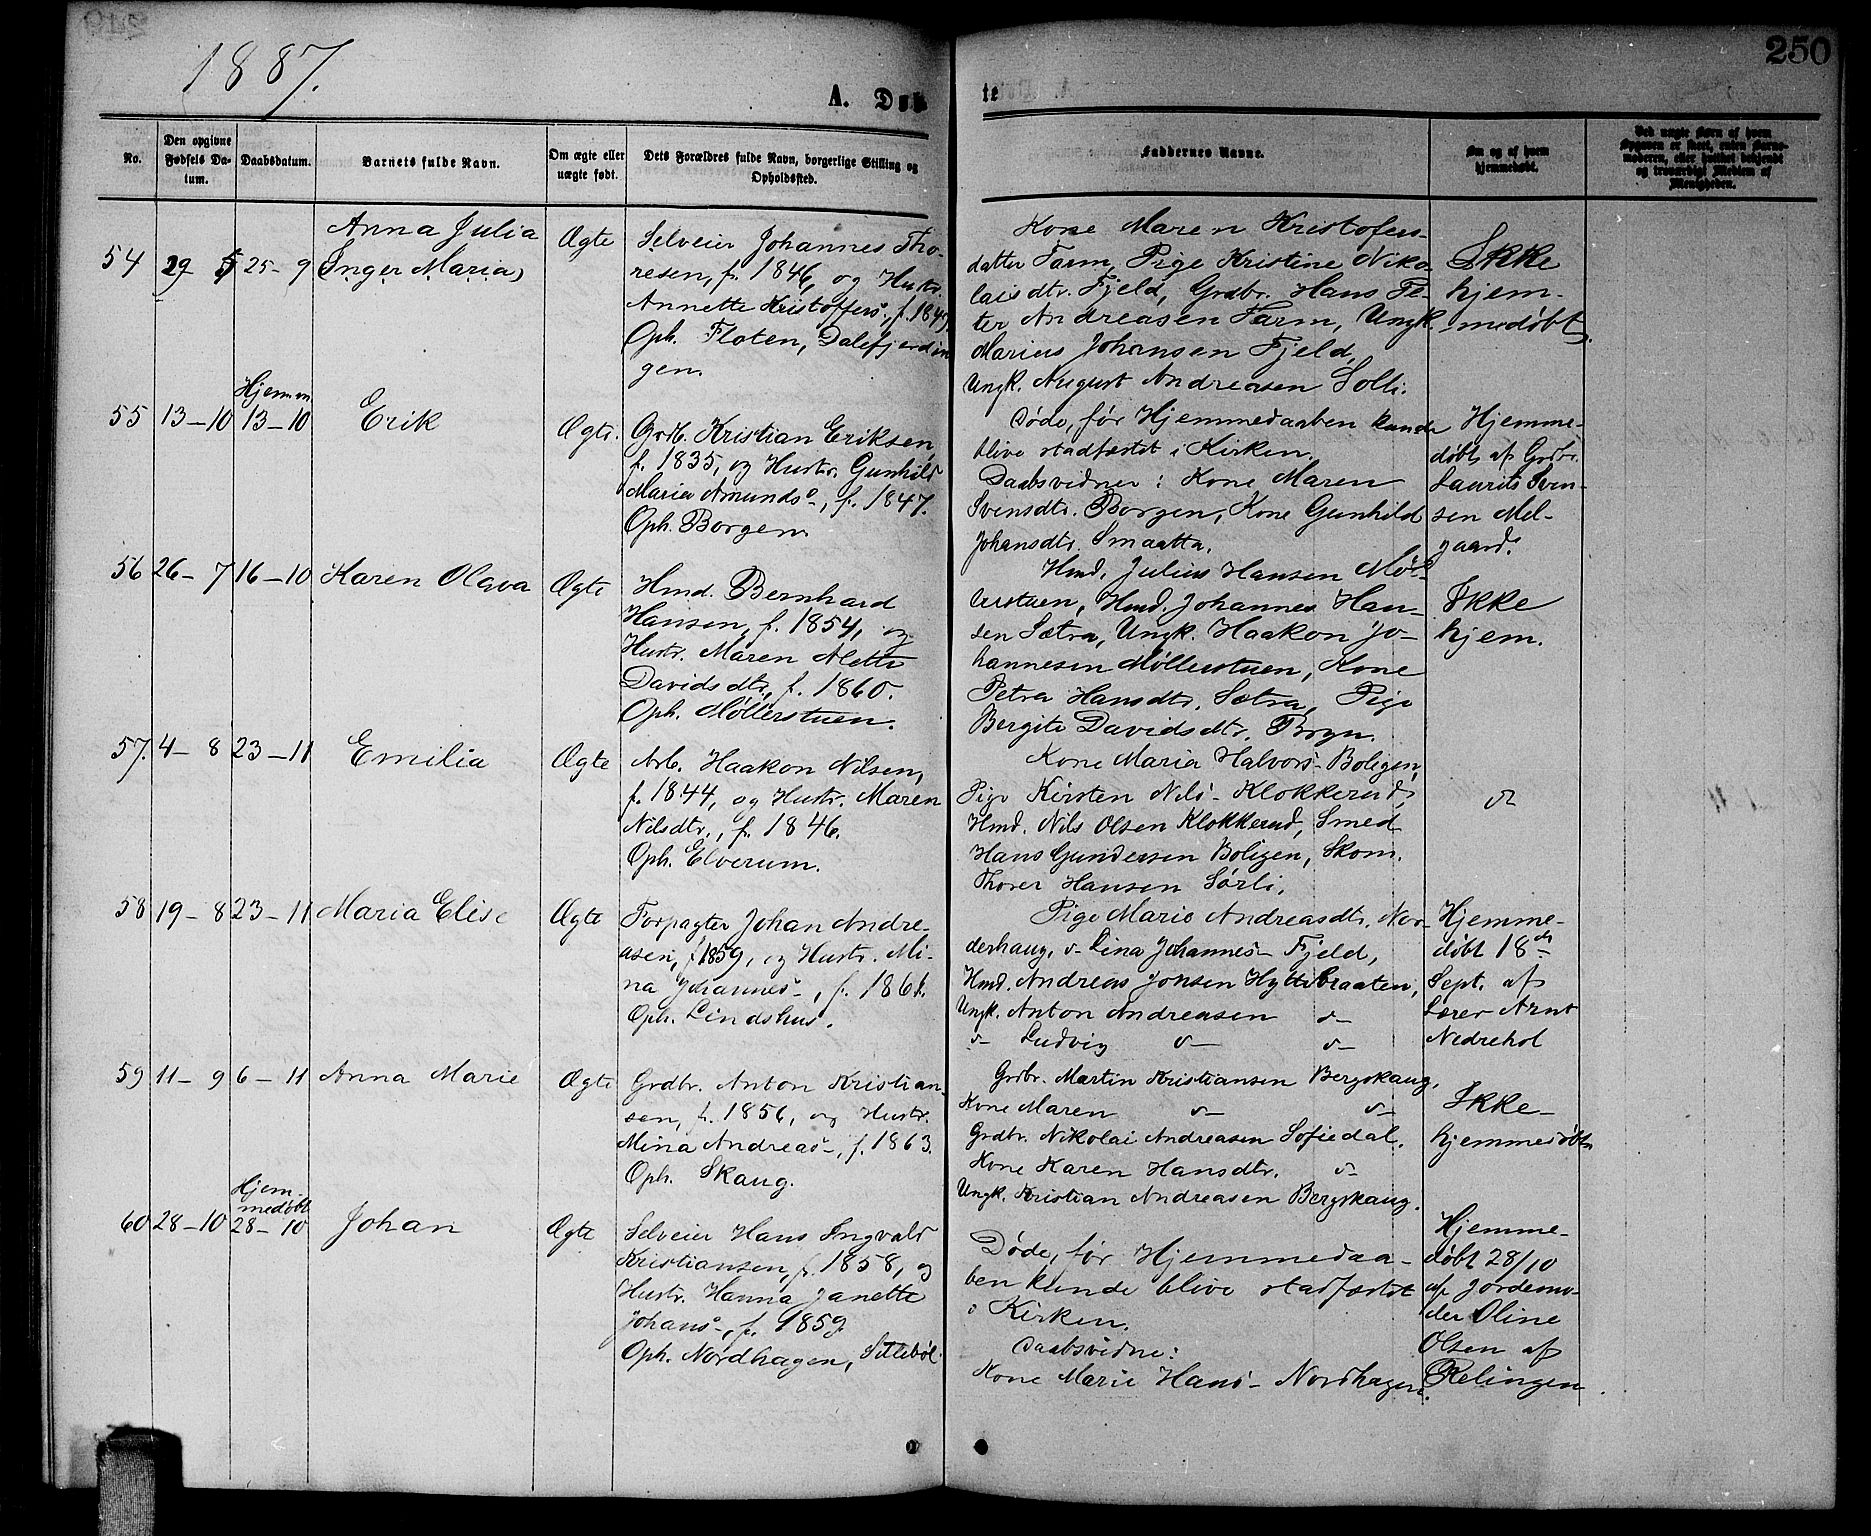 1887.
250
A. Døb
te
No.
Den opgivne Fødsels Datum.
Daabsdatum.
Barnets fulde Navn.
Om ægte eller uægte født.
Dets Forældres fulde Navn, borgerlige Stilling og Opholdsted.
Faddernes Navne.
Om og af hvem hjemmedøbt.
54
29 5
25-9
Anna Julia
Inger Maria
Ægte
Selveier Johannes Tho-
resen, f. 1846, og Hustr.
Annette Kristoffers-, f. 184
Oph. Floten, Dalefjerdin
gen.
Kone Maren Kristofers-
datter Farm, Pige Kristine Niko-
laisdtr. Fjeld, Grdbr. Hans Pe-
ter Andreasen Farm, Ungk.
Marius Johansen Fjeld,
Ungk. August Andreasen Solli.
Ikke
hjem-
medøbt
55
13-10
Hjemm
13-10
Erik
Ægte.
Grdb. Kristian Eriksen,
f. 1835, og Hustr. Gunhild
Maria Amunds-, f. 1847.
Oph. Borgen.
Døde, før Hjemmedaaben kunde
blive stadfæstet i Kirken.
Daabsvidner: Kone Maren
Svensdtr. Borgen, Kone Gunhild
Johansdtr. Smaatta.
Hjemme-
døbt af Grdbr.
Laurits Sven-
sen Mel-
gaard.
56
26-7
16-10
Karen Olava
Ægte
Hmd. Bernhard
Hansen, f. 1854, og
Hustr. Maren Alette
Davidsdtr, f. 1860.
Oph. Møllerstuen.
Hmd. Julius Hansen Møl-
lerstuen, Hmd. Johannes Han-
sen Sætra, Ungk. Haakon Jo-
hannesen Møllerstuen, Kone
Petra Hansdtr. Sætra, Pige
Bergite Davidsdtr. Bryn.
Ikke
hjem.
57.
4-8
23-11
Emilia
Ægte
Arb. Haakon Nilsen,
f. 1844, og Hustr. Maren
Nilsdtr., f. 1846.
Oph. Elverum.
Kone Maria Halvors- Boligen,
Pige Kirsten Nils- Klokkerud,
Hmd. Nils Olsen Klokkerud, Smed
Hans Gundersen Boligen, Skom.
Thorer Hansen Sørli.
58
19-8
23-11
Maria Elise
Ægte
Forpagter Johan Andre-
asen, f. 1859, og Hustr. Mi-
na Johannes-, f. 1861.
Oph. Lindshus.
Pige Marie Andreasdtr. Nor-
derhaug, Lina Johannes- Fjeld,
Hmd. Andreas Jonsen Hyttebraaten,
Ungk. Anton Andreasen
Ludvig
Hjemme-
døbt 18de
Sept. af
Lærer Arnt
Nedrehol
59
11-9
6-11
Anna Marie
Ægte
Grdbr. Anton Kristian-
sen, f. 1856, og Hustr.
Mina Andreas-, f. 1863.
Oph. Skaug.
Grdbr. Martin Kristiansen Bergskaug,
Kone Maren
Grdbr. Nikolai Andreasen Sofiedal,
Kone Karen Hansdtr.
Ungk. Kristian Andreasen Bergskaug.
Ikke
hjemmedøbt
60
28-10
Hjem-
medøbt
28-10
Johan
Ægte
Selveier Hans Ingvald
Kristiansen, f. 1858, og
Hustr. Hanna Janette
Johans-, f. 1859
Oph. Nordhagen, Sillebøl
Døde, før Hjemmedaa-
ben kunde blive stadfæstet
i Kirken.
Daabsvidne:
Kone Marie Hans- Nordhagen.
Hjemme-
døbt 28/10
af Jordemo-
der Oline
Olsen af
Relingen